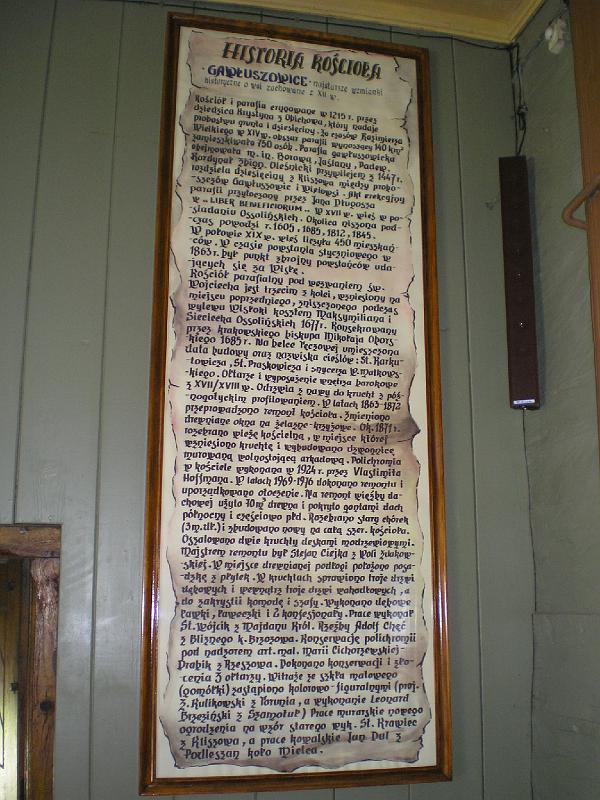 HISTORIA KOŚCIOŁA
GAWŁUSZOWICE - najstarsze wzmianki
historyczne o wsi zachowane z XII w.
Kościół i parafia erygowane w 1215 r. przez
dziedzica Krystyna z Obiechowa, który nadaje
probostwu grunta i dziesięciny. Za czasów Kazimierza
Wielkiego w XIV w. obszar parafii wynoszący 140 km²
zamieszkiwało 750 osób. Parafia gawłuszowicka
obejmowała m. in. Borową, Jaślany, Padew.
Kardynał Zbign. Oleśnicki przywilejem z 1447 r.
rozdziela dziesięciny z Kliszowa między probo-
szczów Gawłuszowic i Mielowsi. Akt erekcyjny
parafii przytoczony przez Jana Długosza
w „LIBER BENEFICIORUM". W XVII w. wieś w po-
siadaniu Ossolińskich. Okolica niszczona pod-
czas powodzi r. 1605, 1685, 1812, 1845.
W połowie XIX w. wieś liczyła 450 mieszkań-
ców. W czasie powstania styczniowego w
1863 r. był punkt zbrojny powstańców uda-
jących się za Wisłę.
Kościół parafialny pod wezwaniem św.
Wojciecha jest trzecim z kolei, wzniesiony na
miejscu poprzedniego, zniszczonego podczas
wylewu Wisłoki kosztem Maksymiliana i
Sieciecha Ossolińskich 1677 r. Konsekrowany
przez krakowskiego biskupa Mikołaja Obors-
kiego 1685 r. Na belce tęczowej umieszczona
data budowy oraz nazwiska cieślów: St. Karku-
towicza, St. Praskowicza i snycerza W. Matkows-
kiego. Ołtarze i wyposażenie wnętrza barokowe
z XVII/XVIII w. Odrzwia z nawy do kruchty z póź-
nogotyckim profilowaniem. W latach 1863-1872
przeprowadzono remont kościoła. Zmieniono
drewniane okna na żelazne-krzyżowe. Ok. 1871 r.
rozebrano wieżę kościelną, w miejsce której
wzniesiono kruchtę i wybudowano dzwonnicę
murowaną wolnostojącą arkadową. Polichromia
w kościele wykonana w 1924 r. przez Vlastimila
Hoffmana. W latach 1969-1976 dokonano remontu i
uporządkowano otoczenie. Na remont więźby da-
chowej użyto 70 m³ drewna i pokryto gontami dach
północny i częściowo płd. Rozebrano stary chórek
(3m.dł.) i zbudowano nowy na całą szer. kościoła.
Oszalowano dwie kruchty deskami modrzewiowymi.
Majstrem remontu był Stefan Ciejka z Woli Zdakow-
skiej. W miejsce drewnianej podłogi położono posa-
dzkę z płytek. W kruchtach sprawiono troje drzwi
dębowych i wewnątrz troje drzwi wahadłowych, a
do zakrystii komodę i szafy. Wykonano dębowe
ławki, ławeczki i 2 konfesjonały. Prace wykonał
St. Wójcik z Majdanu Król. Rzeźby Adolf Chęć
z Bliznego k. Brzozowa. Konserwację polichromii
pod nadzorem art. mal. Marii Cichorzewskiej-
Drabik z Rzeszowa. Dokonano konserwacji i zło-
cenia 3 ołtarzy. Witraże ze szkła matowego
(gomółki) zastąpiono kolorowo-figuralnymi (proj.
Z. Kulikowski z Torunia, a wykonanie Leonard
Brzeziński z Szamotuł) Prace murarskie nowego
ogrodzenia na wzór starego wyk. St. Krawiec
z Kliszowa, a prace kowalskie Jan Dul z
Podleszan koło Mielca.